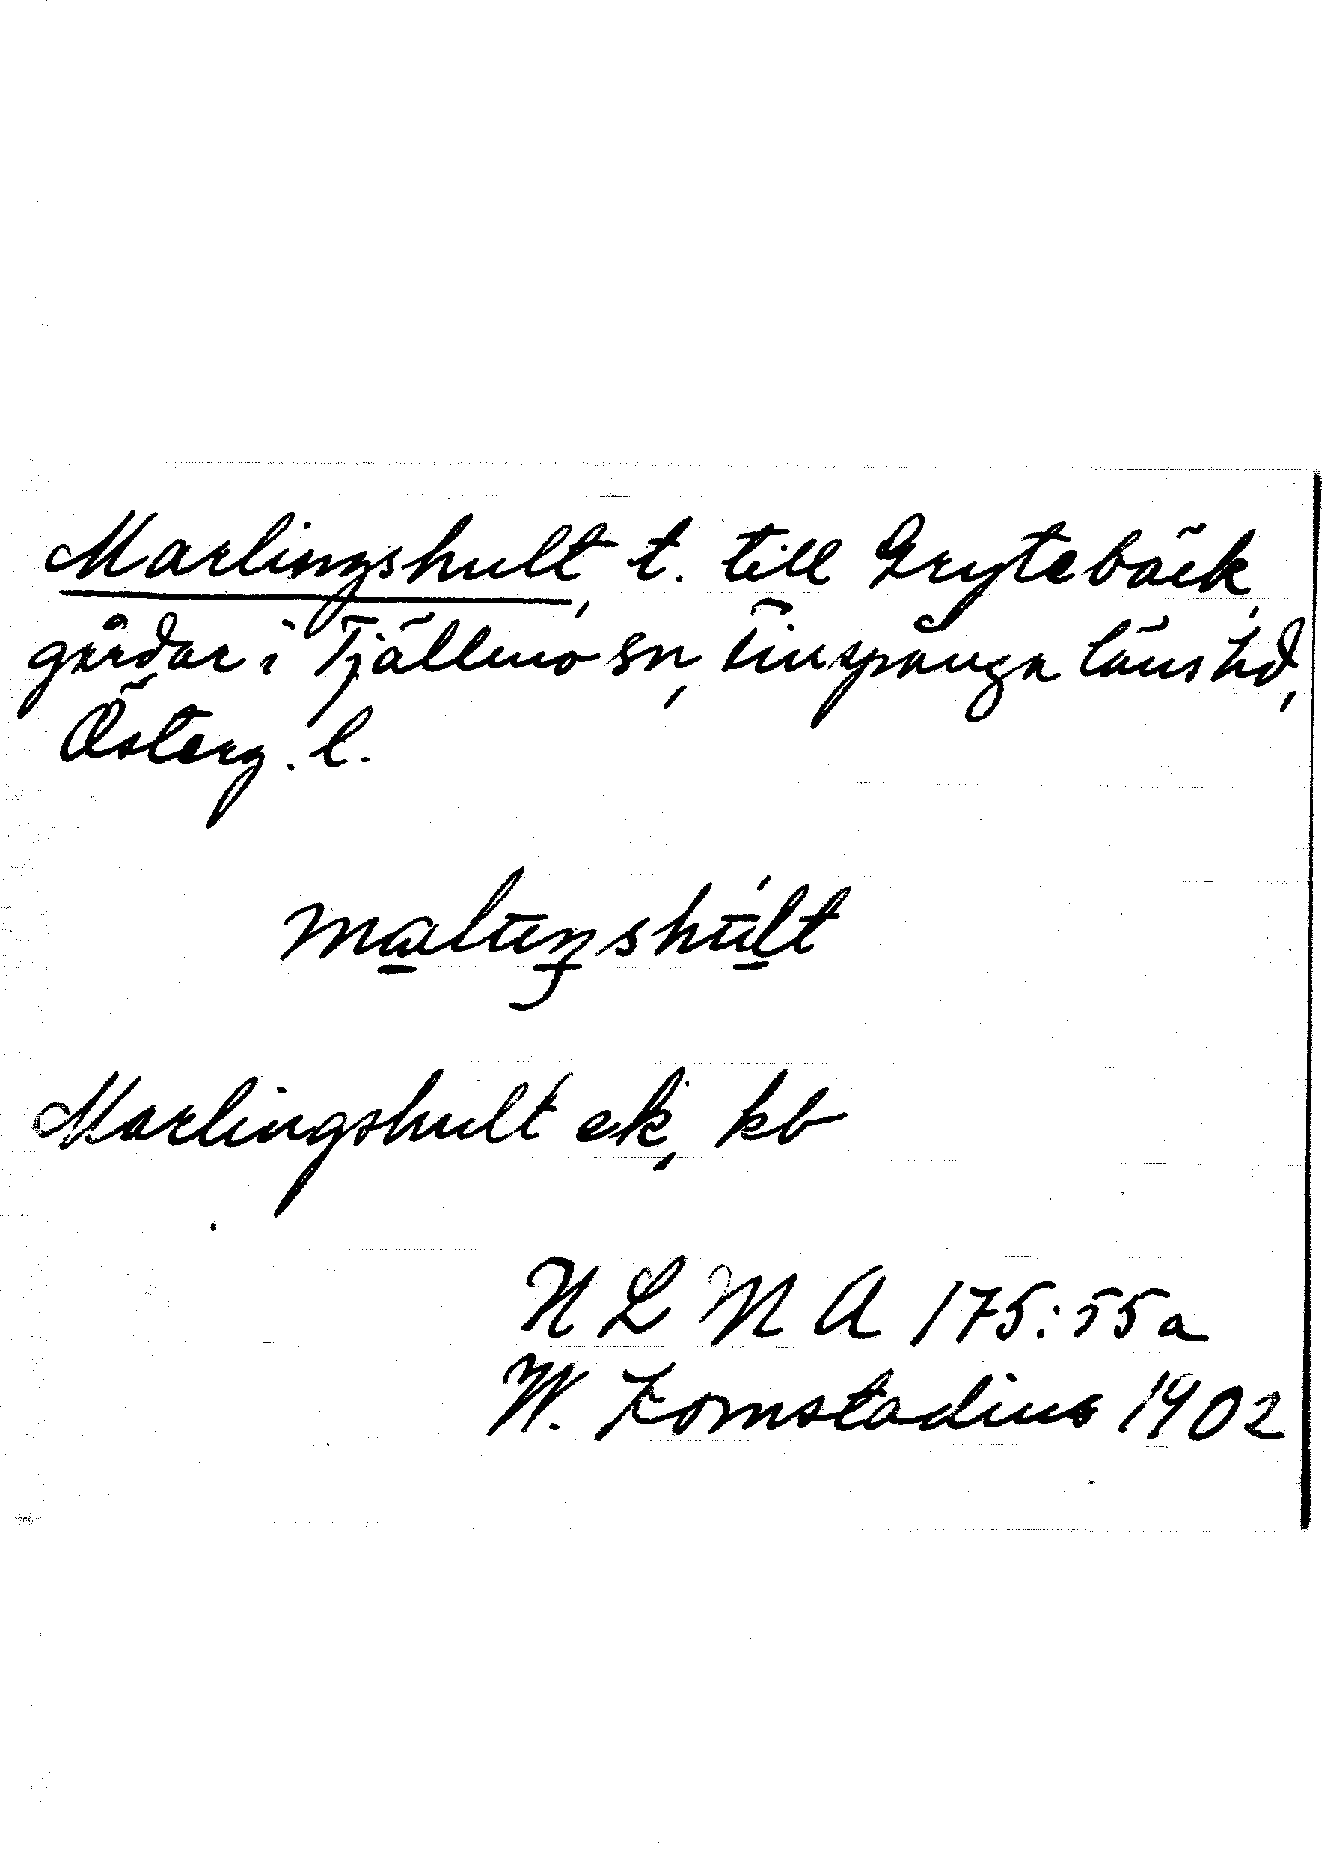 Marlingshult, t. till Grytebäck,
gårdar i Tjällmo sn, Finspånga läns hd,
Österg. l.
Marlingshult ek, kb
N L M A 175:55a
W. Komstadius 1902